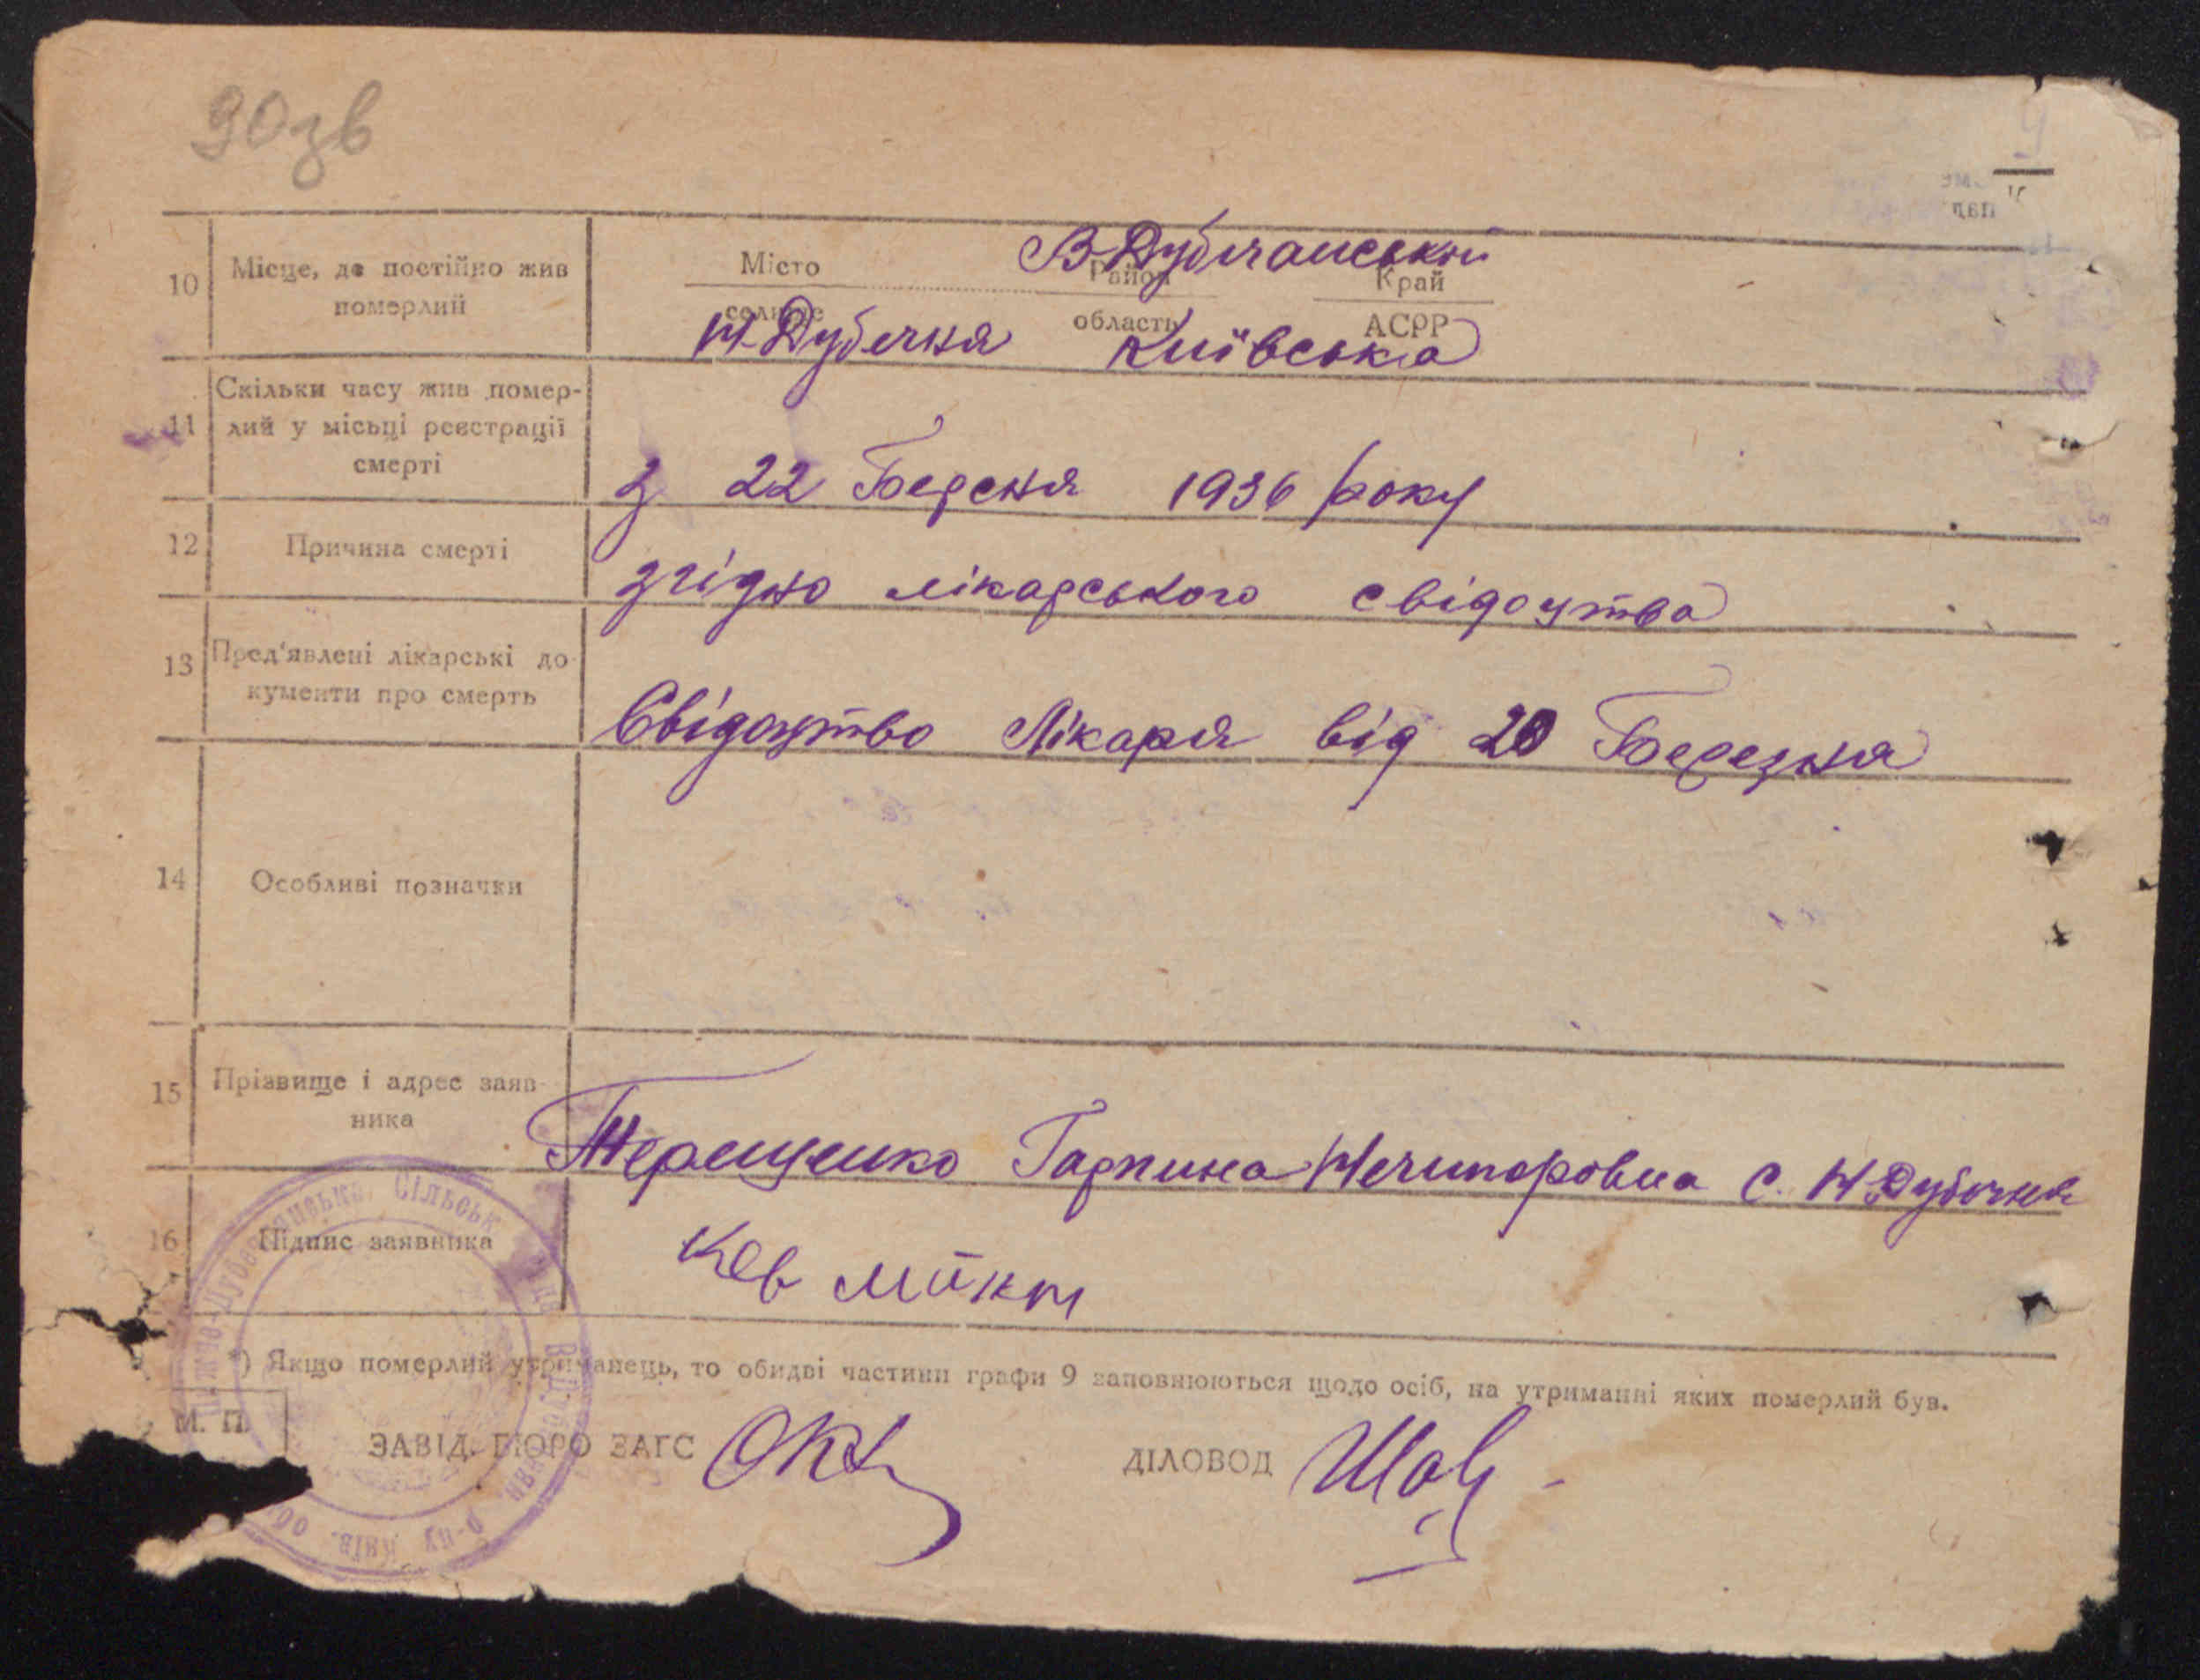 90зв
10 Місце, де постійно жив померлий
Місто Район Край
селище область АСРР
В Дубечанський
Н. Дубечня Київська
11 Скільки часу жив помер-
лий у місьці реєстрації
смерті
з 22 Береня 1936 року
12 Причина смерті
згідно лікарського свідоцтва
13 Пред'явлені лікарські до-
кументи про смерть
Свідоцтво Лікаря від 20 Березня
14 Особливі позначки
15 Прізвище і адрес заяв-
ника
Терещенко Гарпина Нечипоровна с. Н. Дубечня
16 Підпис заявника
*) Якщо померлий утриманець, то обидві частини графи 9 заповнюються щодо осіб, на утриманні яких померлий був.
М. П.
ЗАВІД. БЮРО ЗАГС
ДІЛОВОД